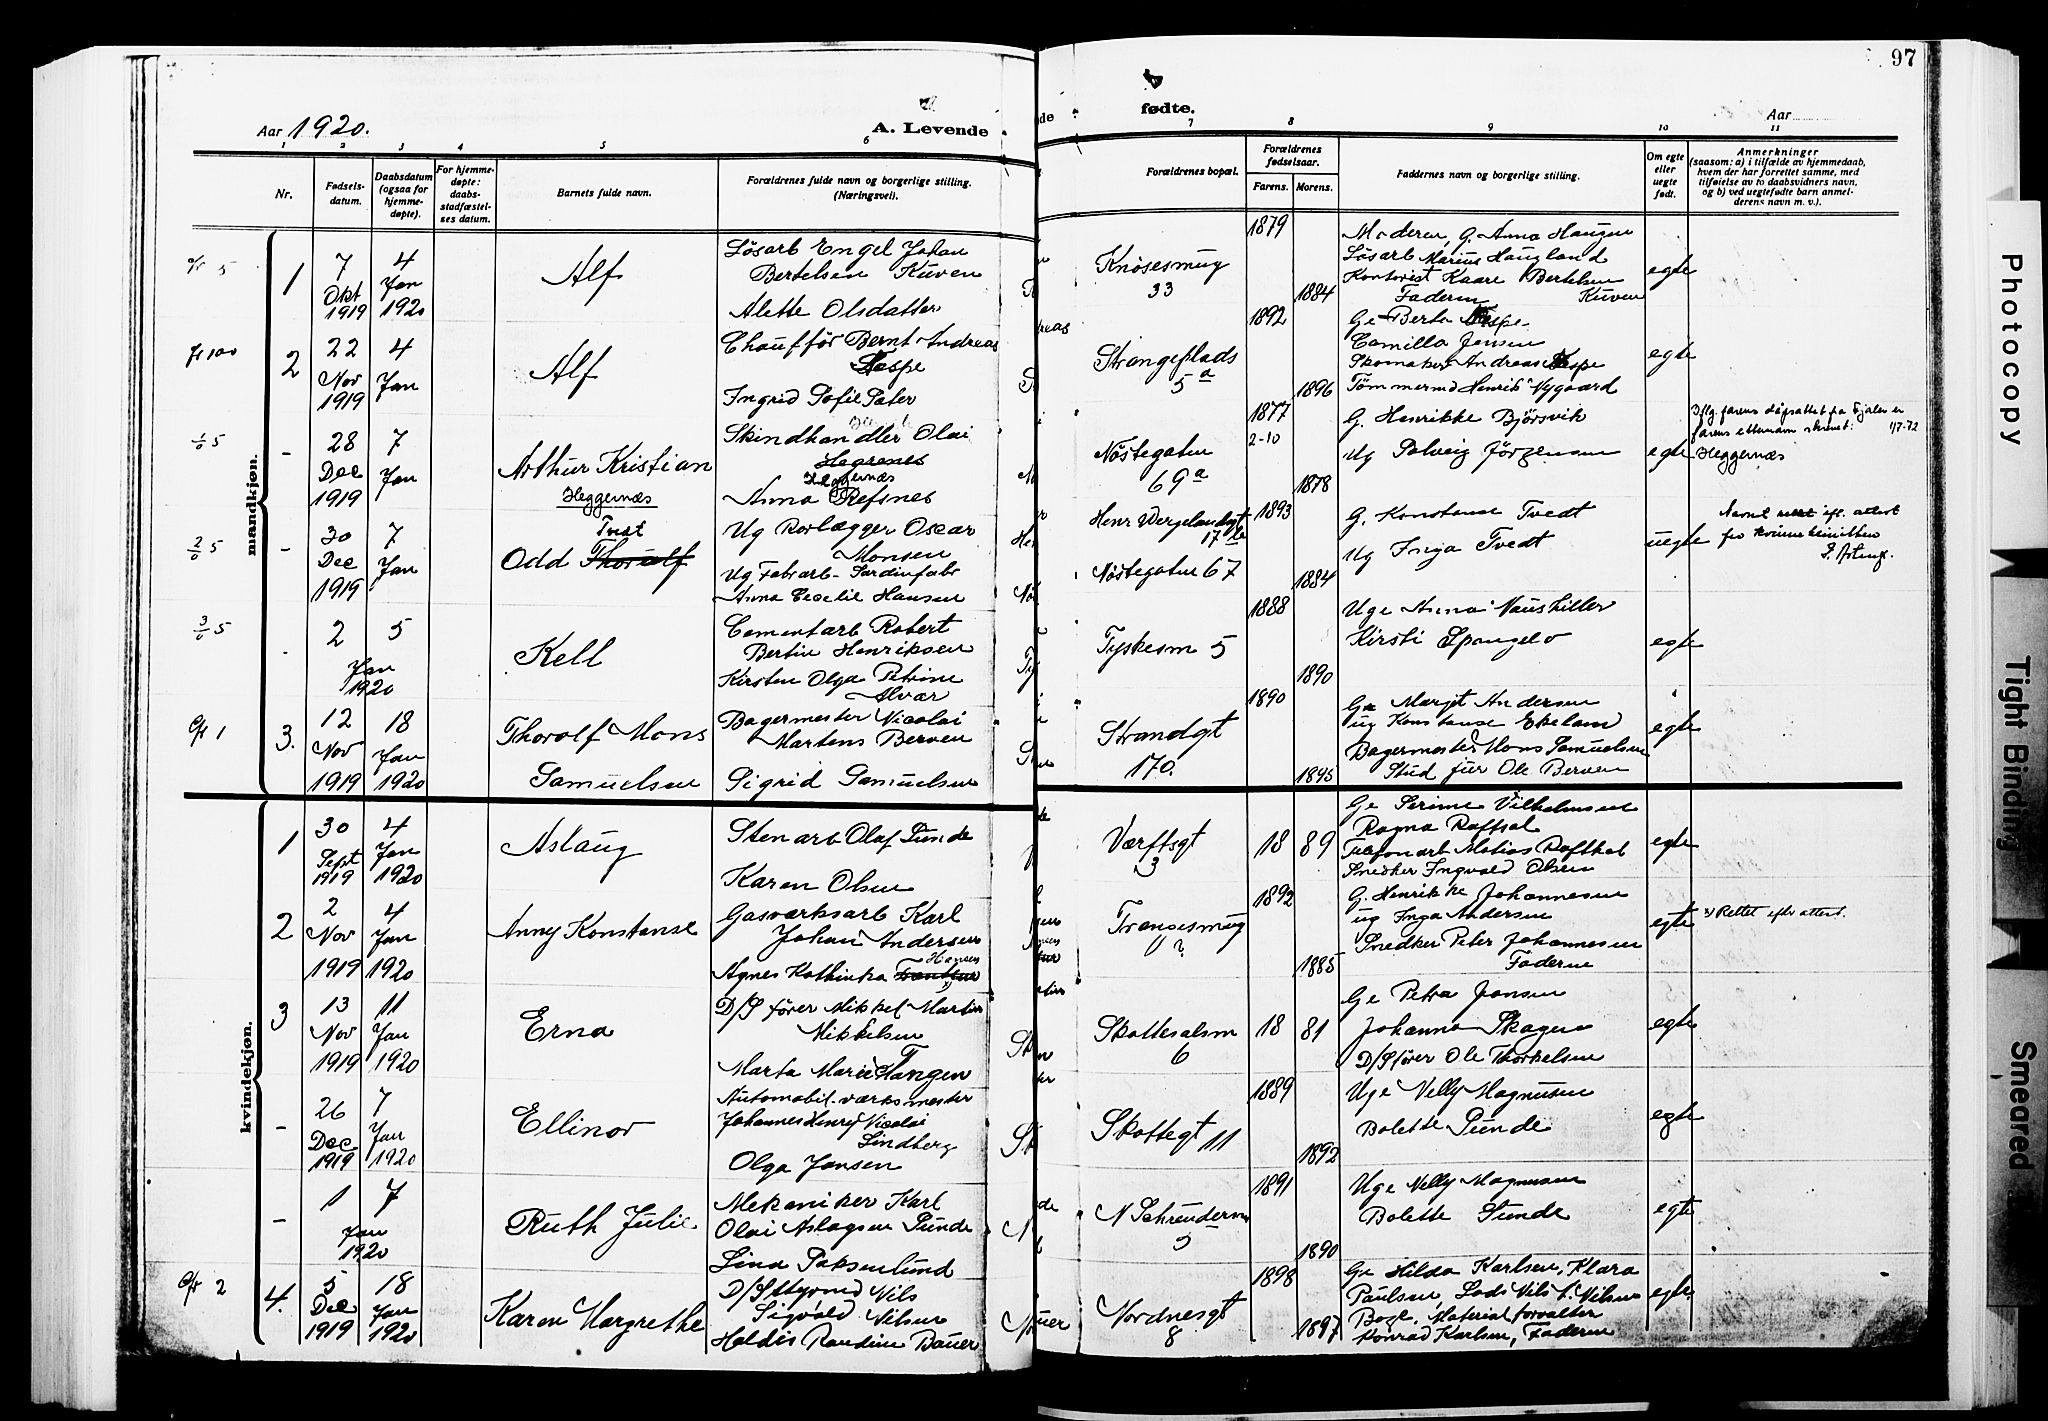 97
Aar 1920.
A. Levende
fødte.
Aar
1 2 3 4 5 6 7 8 9 10 11
Nr.
Fødsels-
datum.
Daabsdatum
(ogsaa for
hjemme-
døpte).
For hjemme-
døpte:
daabs-
stadfæstel-
ses datum.
Barnets fulde navn.
Forældrenes fulde navn og borgerlige stilling.
(Næringsvei).
Forældrenes bopæl.
Forældrenes
fødselsaar.
Farens. Morens.
Faddernes navn og borgerlige stilling.
Om egte
eller
uegte
født.
Anmerkninger
(saasom: a) i tilfælde av hjemmedaab,
hvem der har forrettet samme, med
tilføielse av to daabsvidners navn,
og b) ved uegtefødte barn anmel-
derens navn m. v.).
mandkjøn.
1
7
Okt
1919
4
Jan
1920
Alf
Løsarb Engel Johan
Bertelsen Kuven
Alette Olsdatter
Knøsesmug
33
1879
1884
Moderen, G. Anna Haugen
Løsarb Marius Haugland
Kontorist Kaare Bertelsen
Faderen Kuven
egte
2
22
Nov
1919
4
Jan
Alf
Chaufför Bernt Andreas
Ingrid Sofie Sæter
Strangeplads
5a
1892
1896
Ge Berta
Camilla Jensen
Skomaker Andreas
Tømmermd Henrik Nygaard
egte
-
28
Dec
1919
7
Jan
Arthur Kristian
Heggernæs
Skindhandler Olai
Hegrenes
Heggernæs
Anna Refsnes
Nøstegatun
69a
1877
2-10
1878
G. Henrikke Bjørsvik
Ug Solveig Jørgensen
egte
Iflg. farens dåpsattest fra Fjaler er
farens etternavn skrevet: 1/7-72
Heggernæs
-
30
Dec
1919
7
Jan
Tvedt
Odd Thorolf
Ug Rørlægger Oscar
Monsen
Ug Fabrarb- Sardinfabr
Anna Cecelie Hansen
Henr Wergelandsgt
17
Nøstegatun 67
1893
1884
G. Konstanse Tvedt
Ug Inga Tvedt
uegte
Navnet rettet efl. attest
2
Jan
1920
5
Kell
Cementarb Robert
Bertin Henriksen
Kirsten Olga Petrine
Alvær
Tyskesm 5
1888
1890
Uge Anna Naustiller
Kirsti Spangelo
egte
3.
12
Nov
1919
18
Jan
1920
Thorolf Mons
Samuelsen
Bagermester Nicolai
Martens Berven
Sigrid Samuelsen
Strandgt
170.
1890
1895
Ge Margit Andersen
ug Konstanse Ekeland
Bagermester Mons Samuelsen
Stud jur Ole Berven
egte
kvindekjøn.
1
30
Sept
1919
4
Jan
1920
Aslaug
Stenarb Olaf Sunde
Karen Olsen
Værftsgt
3
18 89
Ge Serine Vilhelmsen
Ragna Raftsal
Telefonarb Matias
Snedker Ingvald Olsen
egte
2
2
Nov
1919
4
Jan
1920
Anny Konstanse
Gasværksarb Karl
Johan Andersen
Hansen
Agnes Kathinka
Trangesmug
?
1892
1885
G. Henrikke Johannesen
ug Inga Andersen
Snedker Peter Johannesen
Faderne
egte
Rettet efter attest.
3
13
Nov
1919
11
Jan
1920
Erna
D/S fører Mikkel Martin
Mikkelsen
Marta Marie Tangen
Skottesalsm
6
18 81
Ge Petra Jansen
Johanna Skagen
D/S fører Ole Thorkelsen
egte
-
26
Dec
1919
7
Jan
1920
Ellinor
Automobil.værksmester
Johannes Henry Nicolai
Lindberg
Olga Jansen
Skottegt 11
1889
1892
Uge Nelly Magnusen
Bolette Sunde
egte
-
1
Jan
1920
7
Ruth Julie
Mekaniker Karl
Olai Aslagsen Sunde
Lina Paksenlund
N Schreuderm
5
1891
1890
Uge Nelly Magnusen
Bolette Sunde
egte
4.
5
Dec
1919
18
Jan
1920
Karen Margrethe
D/S Styrmd Nils
Sigvald Nilsen
Haldis Randine Bauer
Nordnesgt
8
1898
1897
Ge Hilda Karlsen, Klara
Paulsen Lods Nils S. Nilsen
Bagl, Material forvalter
Konrad Karlsen, Faderen
egte
Photocopy
Tight Binding
Smeared